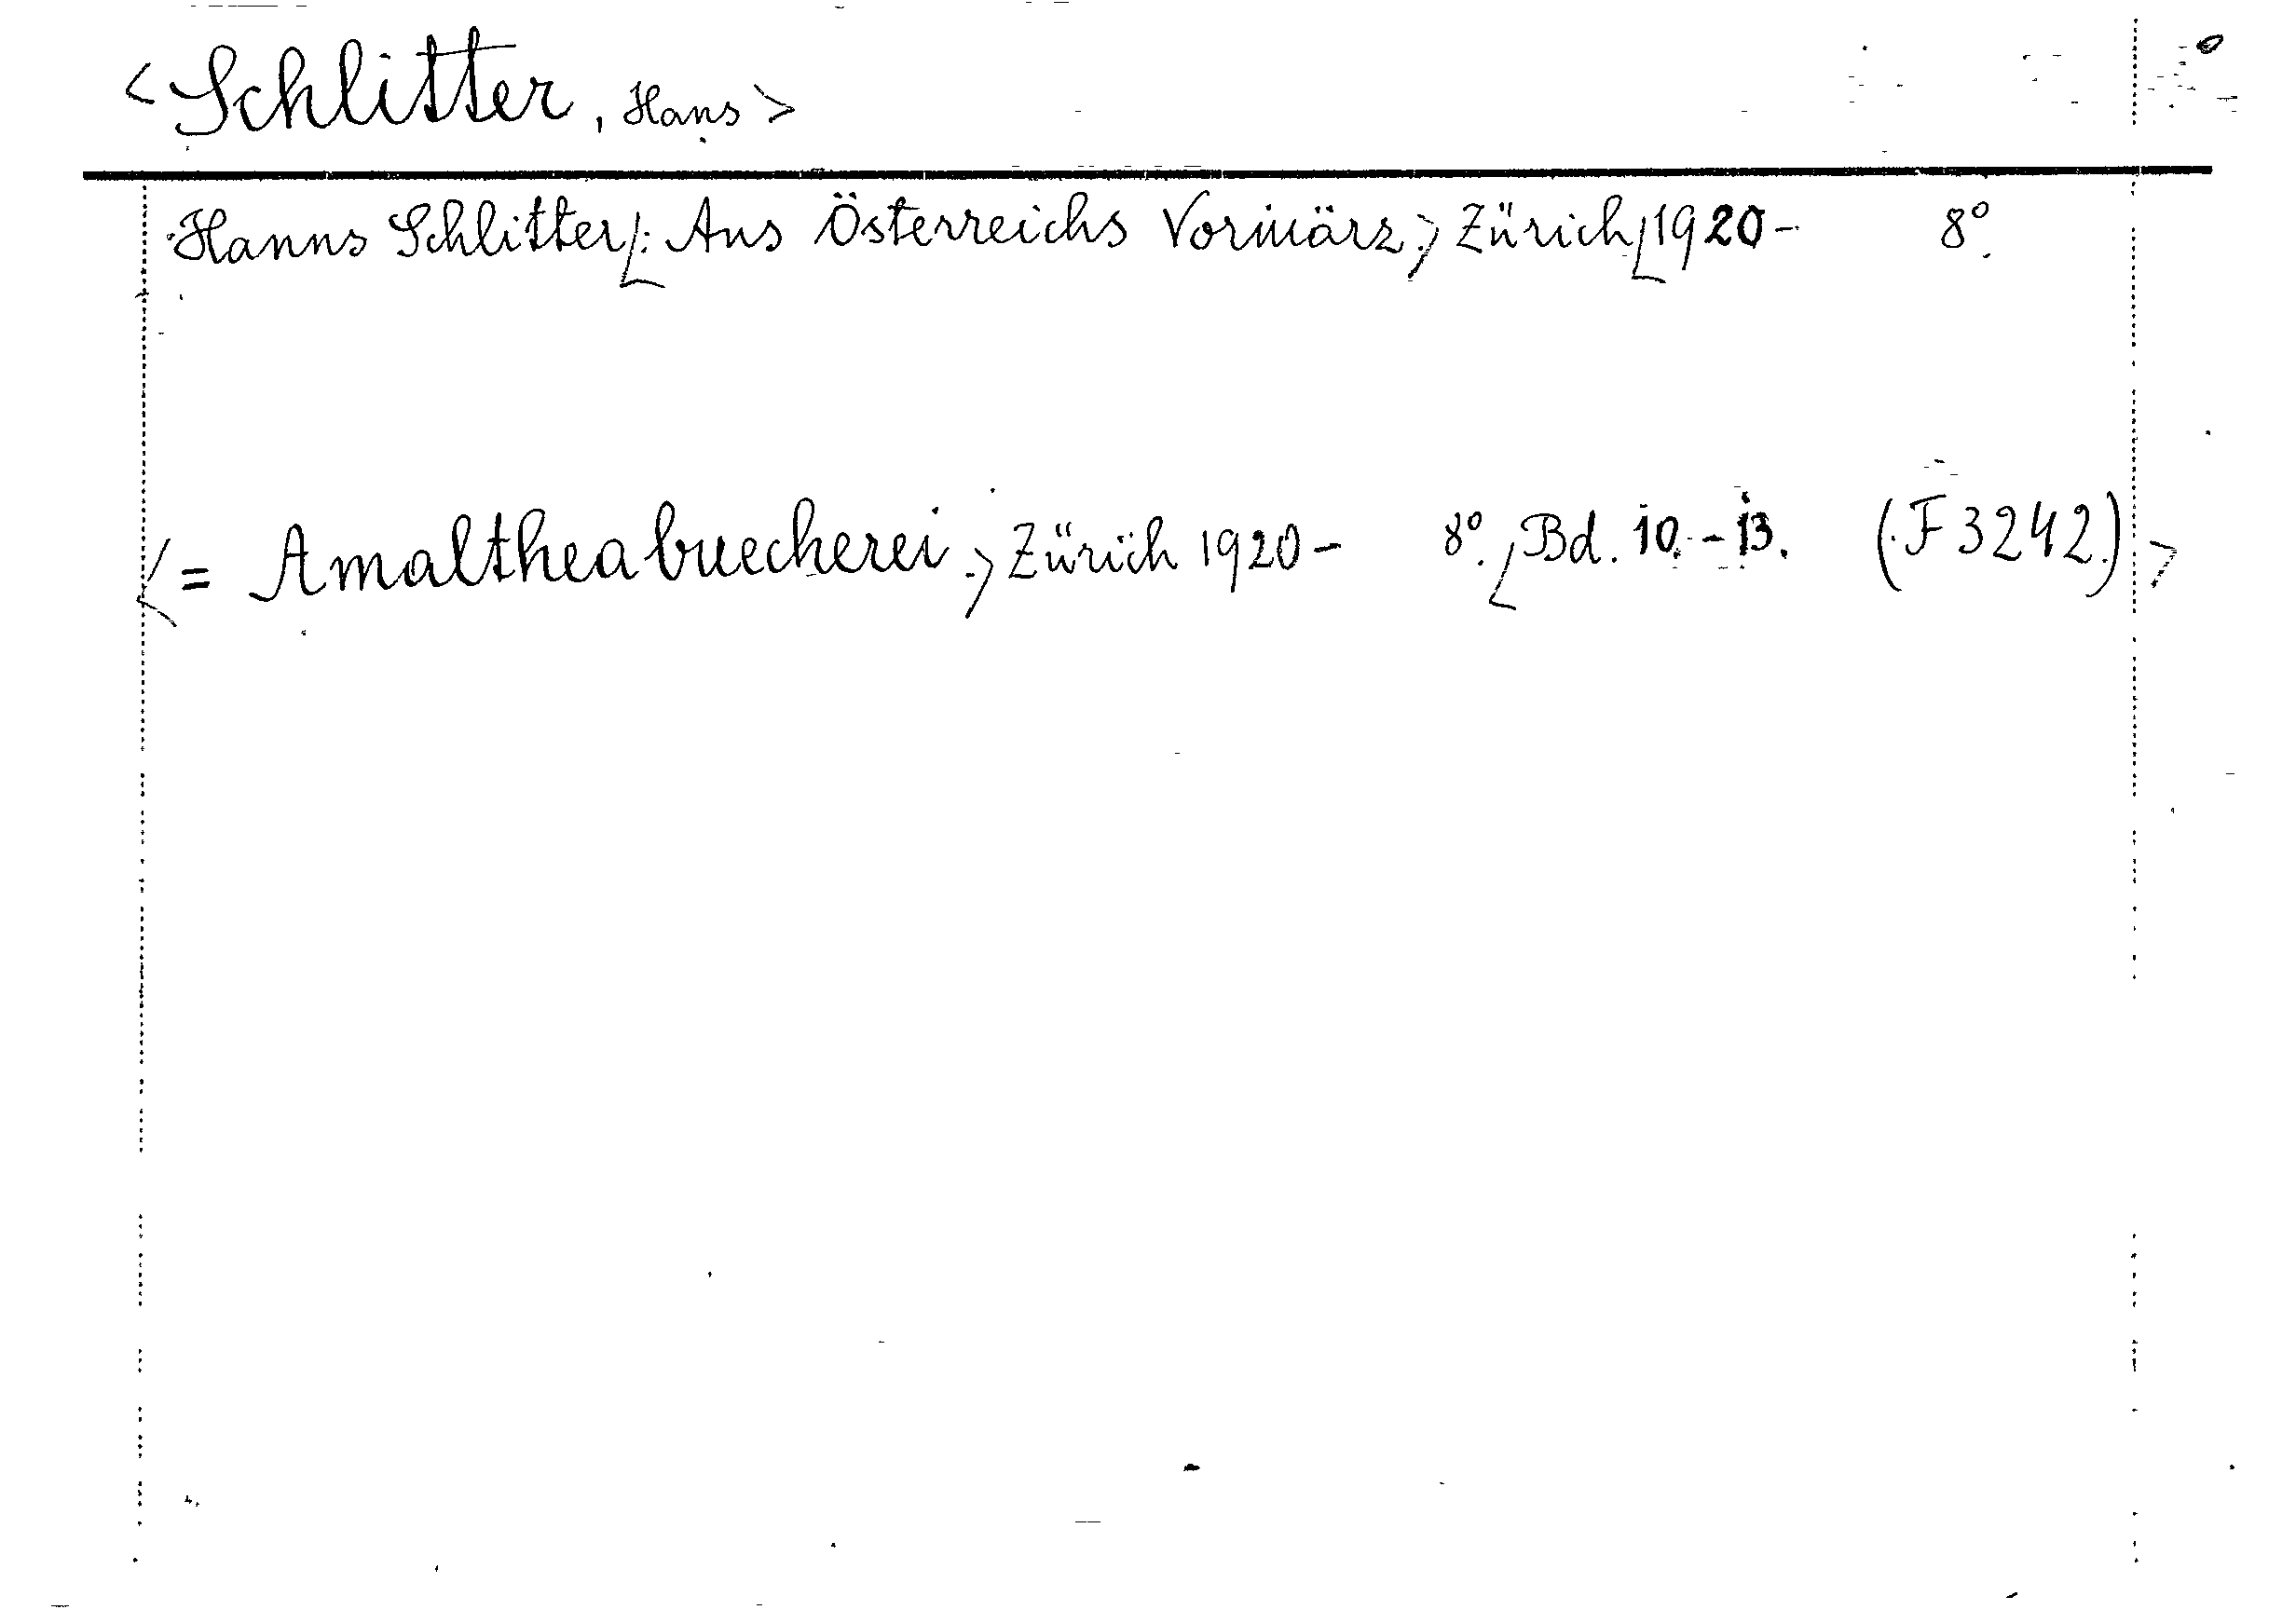 <Schlitter, Hans>
Hanns Schlitter[: Aus Österreichs Vormärz.) Zürich[1920- 8°.
<= Amaltheabuecherei.) Zürich 1920- 8°. [Bd. 10.-13. (F 3242.)>